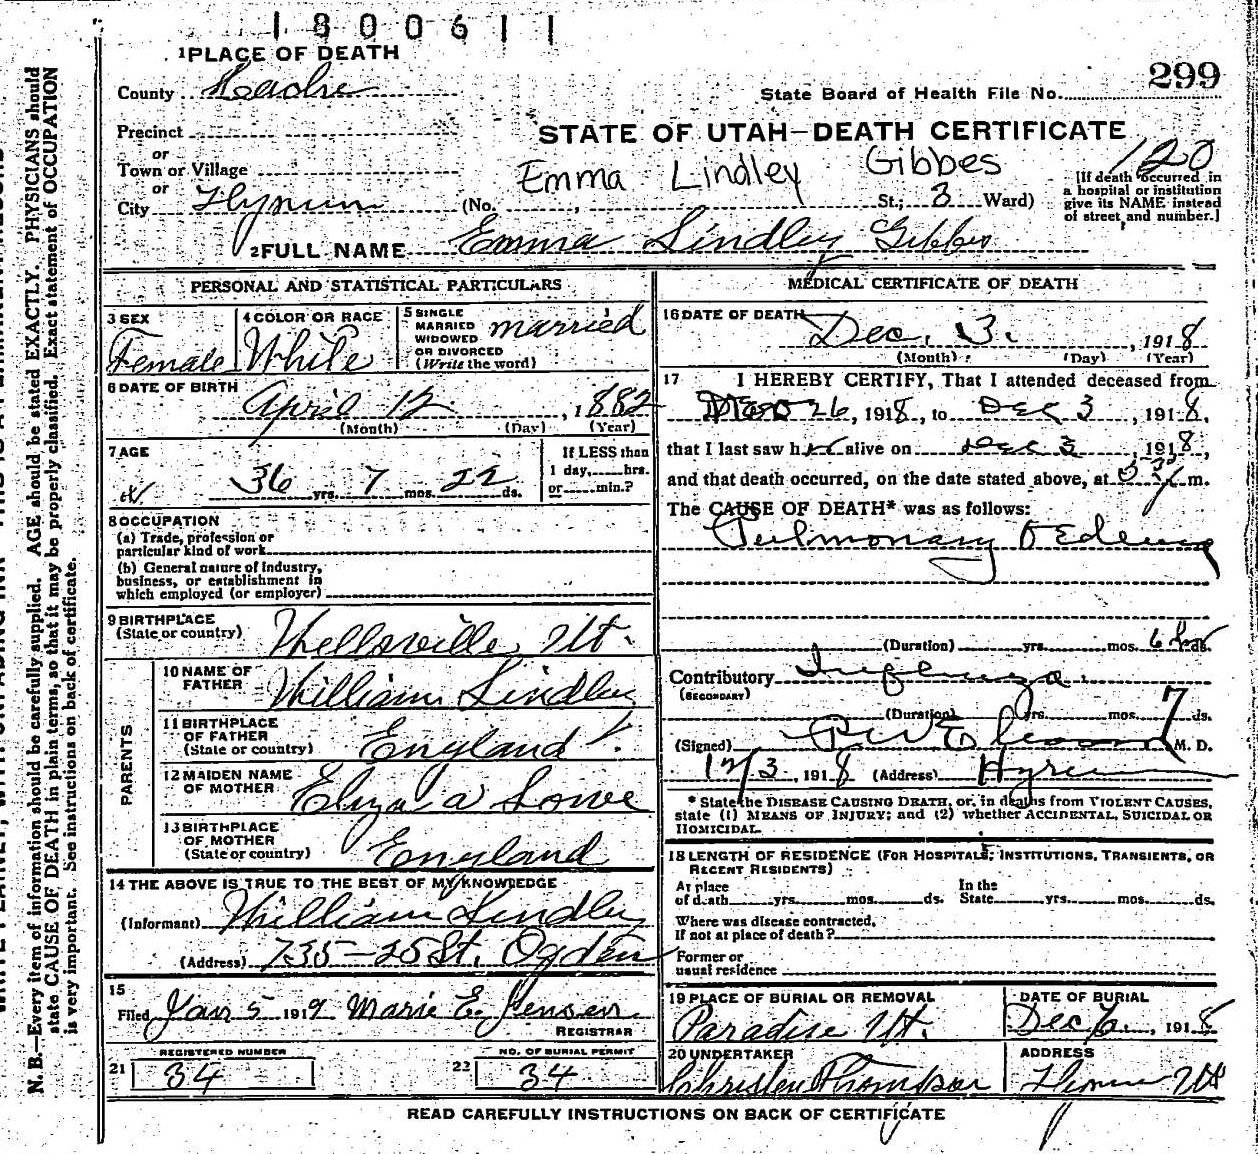 1800611
1 PLACE OF DEATH
299
County Cache
State Board of Health File No.
Precinct
STATE OF UTAH—DEATH CERTIFICATE
or
Town or Village
Emma Lindley Gibbes
120
or
City Hyrum (No. , St.; 3 Ward)
[If death occurred in
a hospital or institution
give its NAME instead
of street and number.]
2 FULL NAME Emma Lindley Gibbes
PERSONAL AND STATISTICAL PARTICULARS
3 SEX
Female
4 COLOR OR RACE
White
5 SINGLE
MARRIED
WIDOWED
OR DIVORCED
(Write the word)
married
6 DATE OF BIRTH
April 12, 1882
(Month) (Day) (Year)
7 AGE
36 yrs. 7 mos. 22 ds.
If LESS than
1 day, hrs.
or min.?
8 OCCUPATION
(a) Trade, profession or
particular kind of work
(b) General nature of Industry,
business, or establishment in
which employed (or employer)
9 BIRTHPLACE
(State or country) Wellsville Ut.
PARENTS
10 NAME OF
FATHER William Lindley
11 BIRTHPLACE
OF FATHER
(State or country) England
12 MAIDEN NAME
OF MOTHER Eliza a Lowe
13 BIRTHPLACE
OF MOTHER
(State or country) England
14 THE ABOVE IS TRUE TO THE BEST OF MY KNOWLEDGE
(Informant) William Lindley
(Address) 735-25 St. Ogden
15
Filed Jan 5 1919 Marie E. Jensen
REGISTRAR
21 REGISTERED NUMBER
34
22 NO. OF BURIAL PERMIT
34
MEDICAL CERTIFICATE OF DEATH
16 DATE OF DEATH
Dec. 3. , 1918
(Month) (Day) (Year)
17 I HEREBY CERTIFY, That I attended deceased from
26, 1918, to Dec 3, 1918,
that I last saw her alive on Dec 3, 1918,
and that death occurred, on the date stated above, at m.
The CAUSE OF DEATH* was as follows:
Pulmonary Oedema
(Duration) yrs. mos. 6 hrs ds.
Contributory Influenza
(SECONDARY)
(Duration) yrs. mos. 7 ds.
(Signed) M. D.
12/3, 1918 (Address) Hyrum
* State the DISEASE CAUSING DEATH, or, in deaths from VIOLENT CAUSES,
state (1) MEANS OF INJURY; and (2) whether ACCIDENTAL, SUICIDAL OR
HOMICIDAL.
18 LENGTH OF RESIDENCE (FOR HOSPITALS, INSTITUTIONS, TRANSIENTS, OR
RECENT RESIDENTS)
At place
of death yrs. mos. ds.
In the
State yrs. mos. ds.
Where was disease contracted,
If not at place of death?
Former or
usual residence
19 PLACE OF BURIAL OR REMOVAL
Paradise Ut.
DATE OF BURIAL
Dec 6, 1918
20 UNDERTAKER
ADDRESS
Hyrum Ut
READ CAREFULLY INSTRUCTIONS ON BACK OF CERTIFICATE
N. B.—Every item of information should be carefully supplied. AGE should be stated EXACTLY. PHYSICIANS should
state CAUSE OF DEATH in plain terms, so that it may be properly classified. Exact statement of OCCUPATION
is very important. See instructions on back of certificate.